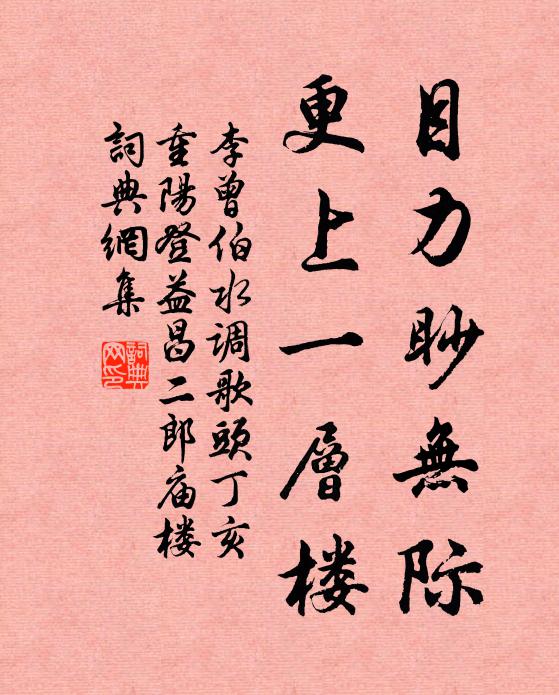 目力眇無际
更上一層楼
李曾伯水调歌頭丁亥
重陽登益昌二郎庙楼
詞典網集
詞典网印